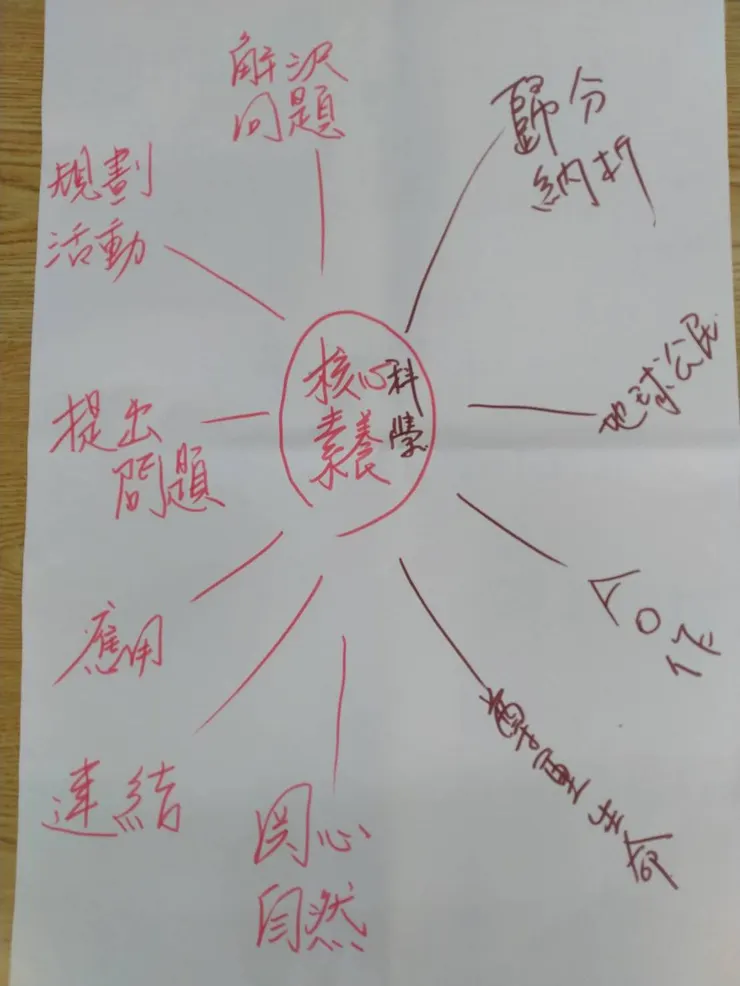 解決
問題
規劃
活動
提出
問題
應用
連結
関心
自然
核心
素養
科學
歸分
納析
地球公民
合作
尊重生命